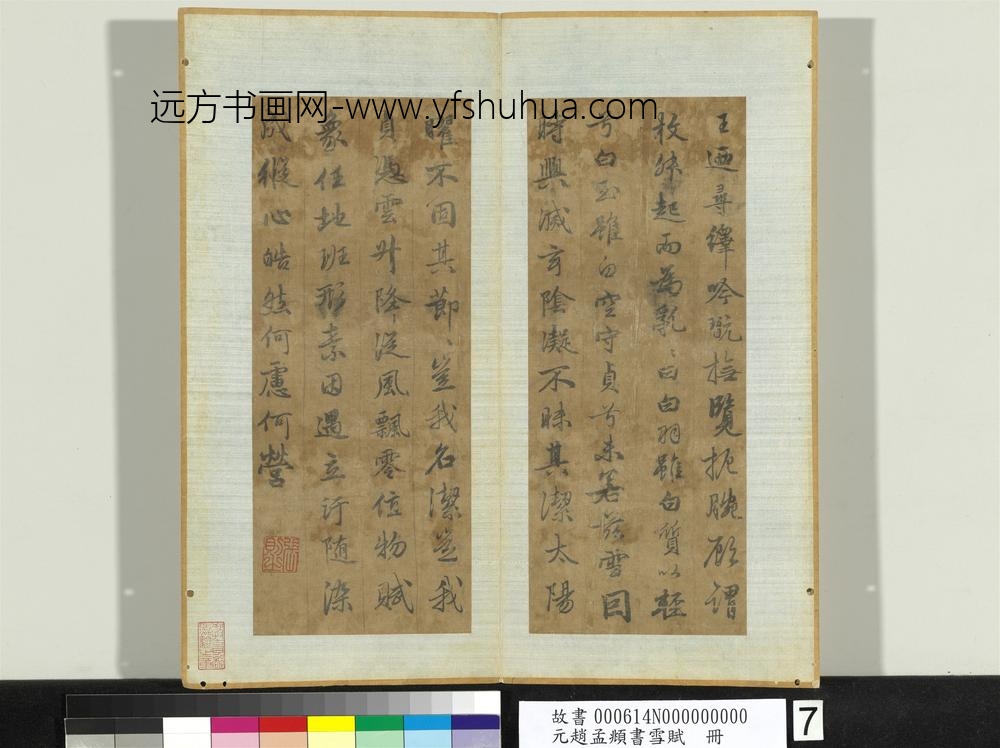 远方书画网-www.yfshuhua.com
王迺尋繹吟翫撫覽扼腕顧謂
枚叔起而為亂〻曰白羽雖白質以輕
兮白玉雖白空守貞兮未若茲雪因
時興滅玄陰凝不昧其潔太陽
曜不固其節〻豈我名潔豈我
貞憑雲升降從風飄零值物賦
象任地班形素因遇立汙隨染
成縱心皓然何慮何營
故書 000614N000000000
元趙孟頫書雪賦 冊
7